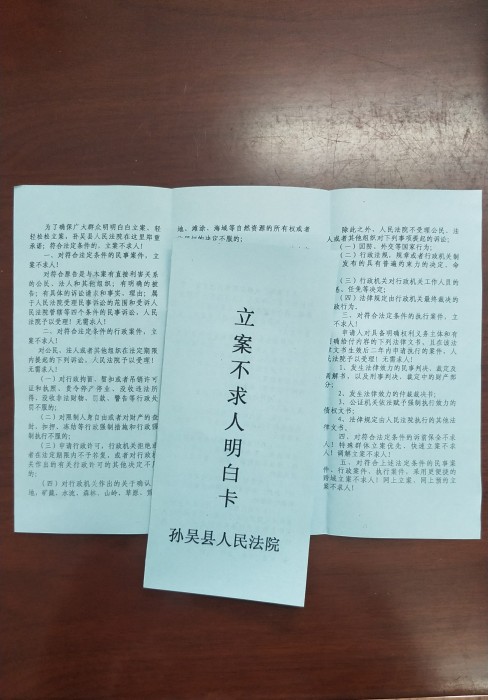 为了确保广大群众明明白白立案、轻
轻松松立案，孙吴县人民法院在这里郑重
承诺：符合法定条件的，立案不求人！
一、对符合法定条件的民事案件，立
案不求人！
对符合原告是与本案有直接利害关系
的公民、法人和其他组织；有明确的被
告；有具体的诉讼请求和事实、理由；属
于人民法院受理民事诉讼的范围和受诉人
民法院管辖等四个条件的民事诉讼，人民
法院予以受理！无需求人！
二、对符合法定条件的行政案件，立
案不求人！
对公民、法人或者其他组织在法定期限
内提起的下列诉讼，人民法院予以受理！
无需求人！
（一）对行政拘留、暂扣或者吊销许可
证和执照、责令停产停业、没收违法所
得、没收非法财物、罚款、警告等行政处
罚不服的；
（二）对限制人身自由或者对财产的查
封、扣押、冻结等行政强制措施和行政强
制执行不服的；
（三）申请行政许可，行政机关拒绝或
者在法定期限内不予答复，或者对行政机
关作出的有关行政许可的其他决定不服
的；
（四）对行政机关作出的关于确认土
地、矿藏、水流、森林、山岭、草原、荒
地、滩涂、海域等自然资源的所有权或者
立案不求人明白卡
孙吴县人民法院
除此之外，人民法院不受理公民、法
人或者其他组织对下列事项提起的诉讼：
（一）国防、外交等国家行为；
（二）行政法规、规章或者行政机关制
发布的具有普遍约束力的决定、命
（三）行政机关对行政机关工作人员的
、任免等决定；
（四）法律规定由行政机关最终裁决的
政行为。
三、对符合法定条件的执行案件，立
不求人！
申请人对具备明确权利义务主体和有
明确给付内容的下列法律文书，且在该法
律文书生效后二年内申请执行的案件，人
民法院予以受理！无需求人！
1、发生法律效力的民事判决、裁定及
调解书，以及刑事判决、裁定中的财产部
分；
2、发生法律效力的仲裁裁决书；
3、公证机关依法赋予强制执行效力的
债权文书；
4、法律规定由人民法院执行的其他法
律文书。
四、对符合法定条件的诉前保全不求
人！特殊群体立案优先、快速立案不求
人！调解立案不求人！
五、对符合上述法定条件的民事案
件、行政案件、执行案件，采用更便捷的
跨域立案不求人！网上立案、网上预约立
案不求人！